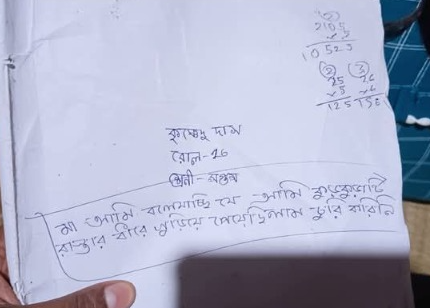 2105
× 5
10525
② ③
25 26
×5 ×6
125 156
কৃষ্ণেন্দু দাস
রোল-26
শ্রেণী - সপ্তম
মা আমি বলেযাচ্ছি যে আমি কুড়কুড়াটি
রাস্তার ধীরে কুড়িয়ে পেয়েছিলাম চুরি করিনি